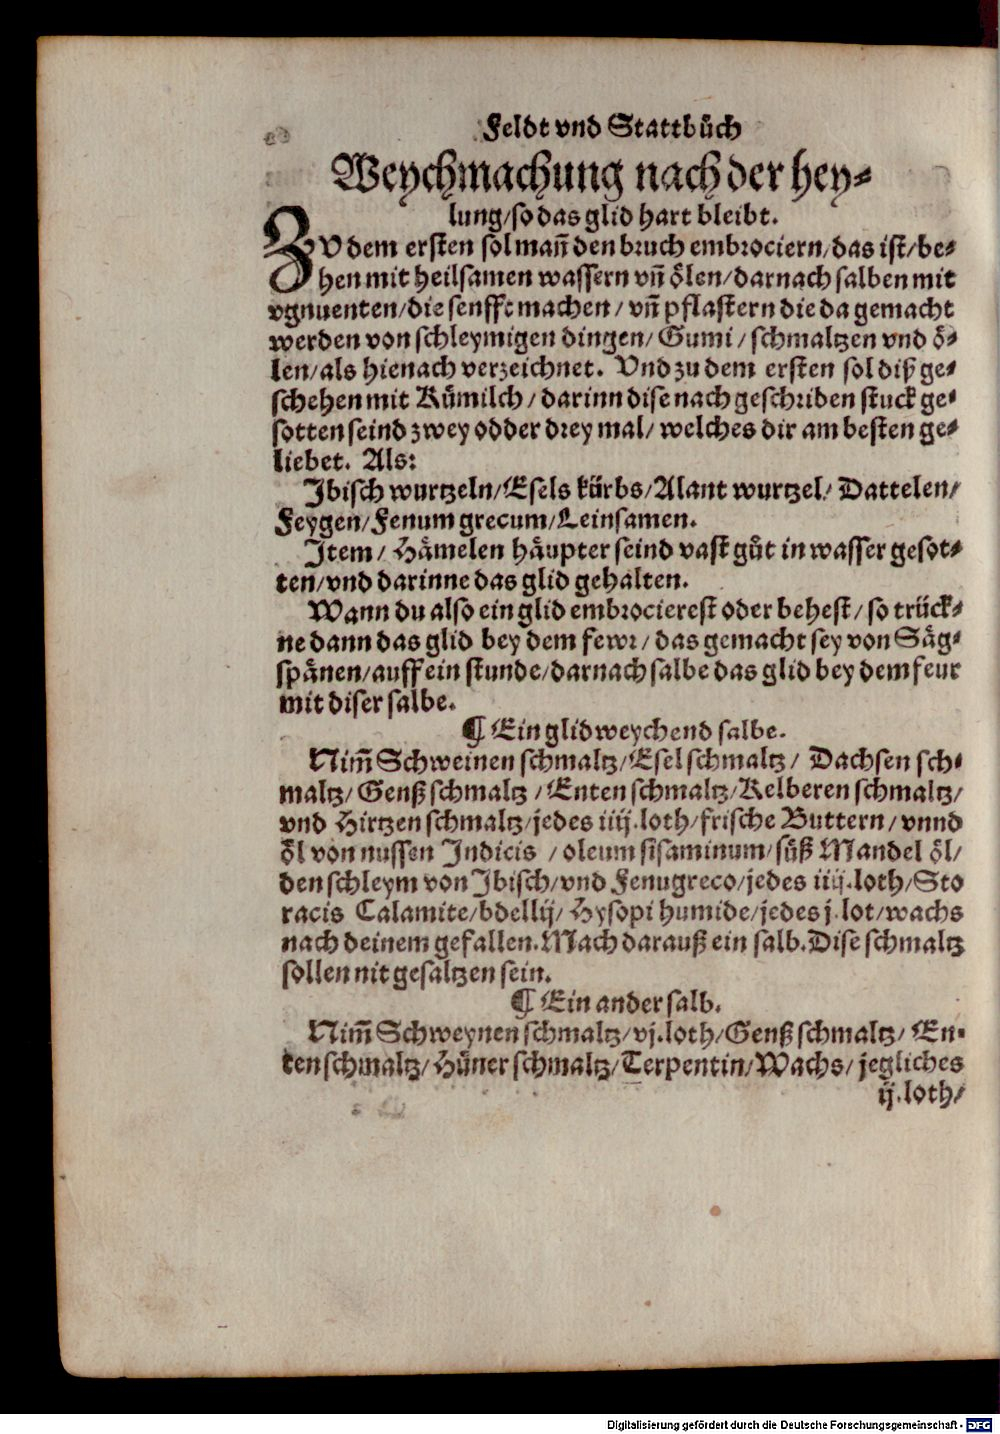 Feldt vnd Stattbůch
Weychmachung nach der hey⸗
lung/so das glid hart bleibt.
ZV dem ersten sol mañ den bruch embrociern/das ist/be⸗
hen mit heilsamen wassern vñ ölen/darnach salben mit
vgnuenten/die senfft machen/ vñ pflastern die da gemacht
werden von schleymigen dingen/ Gumi/ schmaltzen vnd ö⸗
len/als hienach verzeichnet. Vnd zu dem ersten sol diß ge⸗
schehen mit Kůmilch/ darinn dise nach geschriben stuck ge⸗
sotten seind zwey odder drey mal/ welches dir am besten ge⸗
liebet. Als:
Jbisch wurtzeln/Esels kürbs/Alant wurtzel/ Dattelen/
Feygen/Fenum grecum/Leinsamen.
Jtem/ Hämelen häupter seind vast gůt in wasser gesot⸗
ten/vnd darinne das glid gehalten.
Wann du also ein glid embrocierest oder behest/ so trück⸗
ne dann das glid bey dem fewr/ das gemacht sey von Säg⸗
spänen/auff ein stunde/darnach salbe das glid bey dem feur
mit diser salbe.
¶ Ein glidweychend salbe.
Nim̃ Schweinen schmaltz/Esel schmaltz/ Dachsen sch⸗
maltz/ Genß schmaltz /Enten schmaltz/Kelberen schmaltz/
vnd Hirtzen schmaltz/jedes iiij.loth/frische Buttern/ vnnd
öl von nussen Jndicis /oleum sisaminum/süß Mandel öl/
den schleym von Jbisch/vnd Fenugreco/jedes iiij.loth/Sto
racis Calamite/bdellij/ Hysopi humide/jedes j.lot/wachs
nach deinem gefallen.Mach darauß ein salb.Dise schmaltz
sollen nit gesaltzen sein.
¶ Ein ander salb.
Nim̃ Schweynen schmaltz/vj.loth/Genß schmaltz/ En⸗
ten schmaltz/Hüner schmaltz/Terpentin/Wachs/ jegliches
ij.loth/
Digitalisierung gefördert durch die Deutsche Forschungsgemeinschaft - DFG